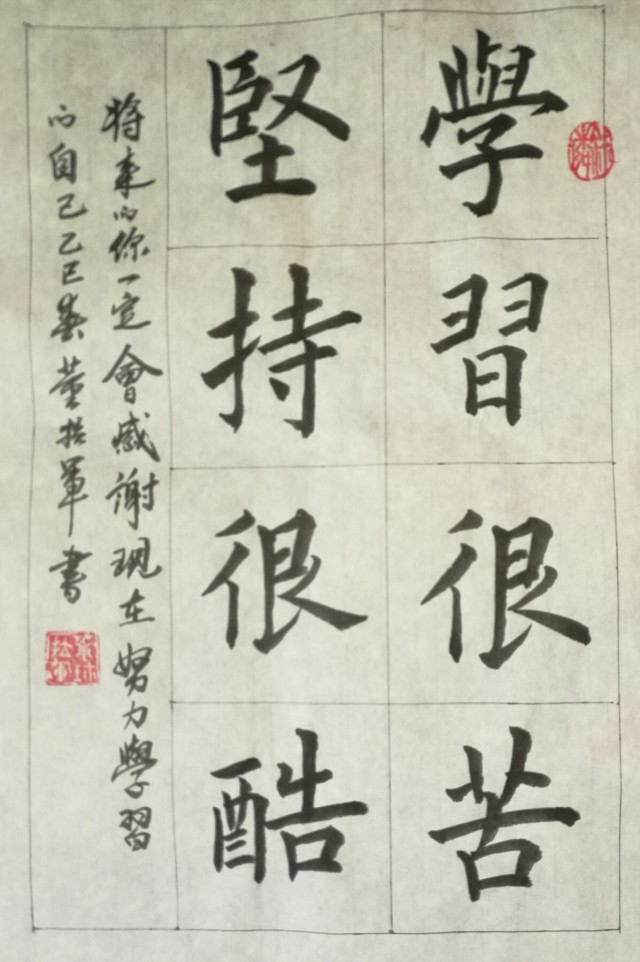 學習很苦
堅持很酷
将来的你一定會感謝現在努力學習
的自己乙巳春董振軍書